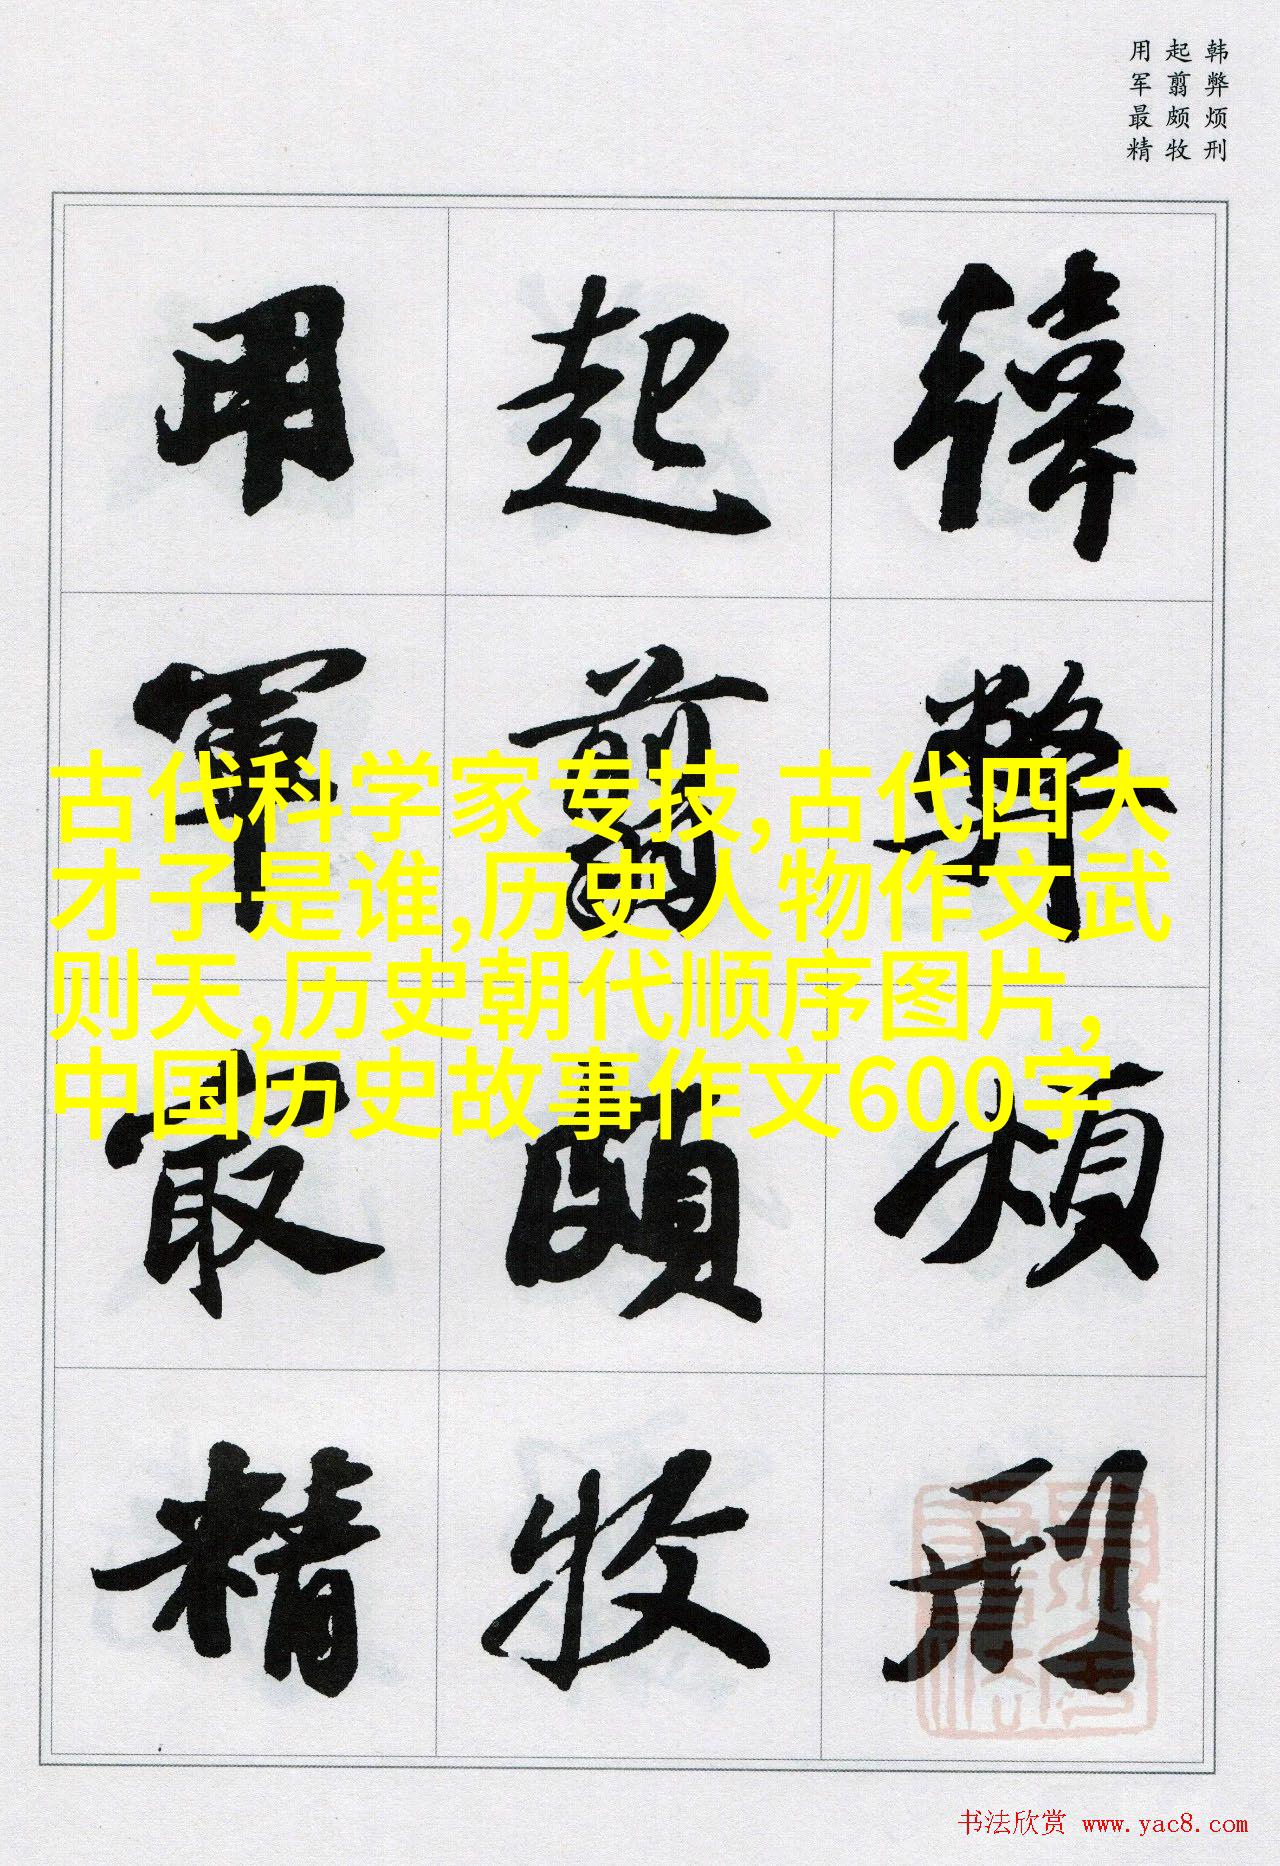 韩弊烦刑
起翦颇牧
用军最精
韓弊煩刑
起翦頗牧
用軍最精
古代科学家专技,古代四大
才子是谁,历史人物作文武
则天,历史朝代顺序图片,
中国历史故事作文600字
书法欣赏 www.yac8.com